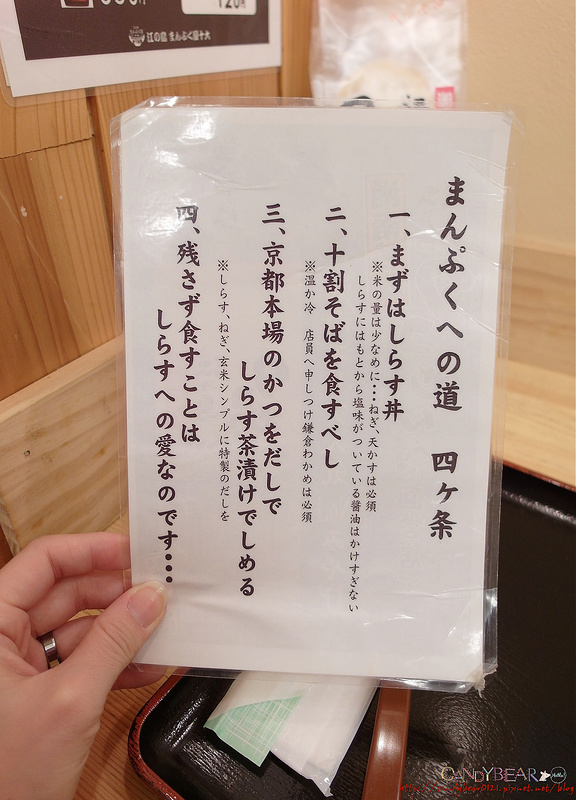 120円
江の島 まんぷく屋十大
まんぷくへの道 四ヶ条
一、まずはしらす丼
※米の量は少なめに・・・ねぎ、天かすは必須
しらすにはもとから塩味がついている醤油はかけすぎない
二、十割そばを食すべし
※温か冷 店員へ申しつけ鎌倉わかめは必須
三、京都本場のかつをだしで
しらす茶漬けでしめる
※しらす、ねぎ、玄米シンプルに特製のだしを
四、残さず食すことは
しらすへの愛なのです・・・
CANDYBEAR